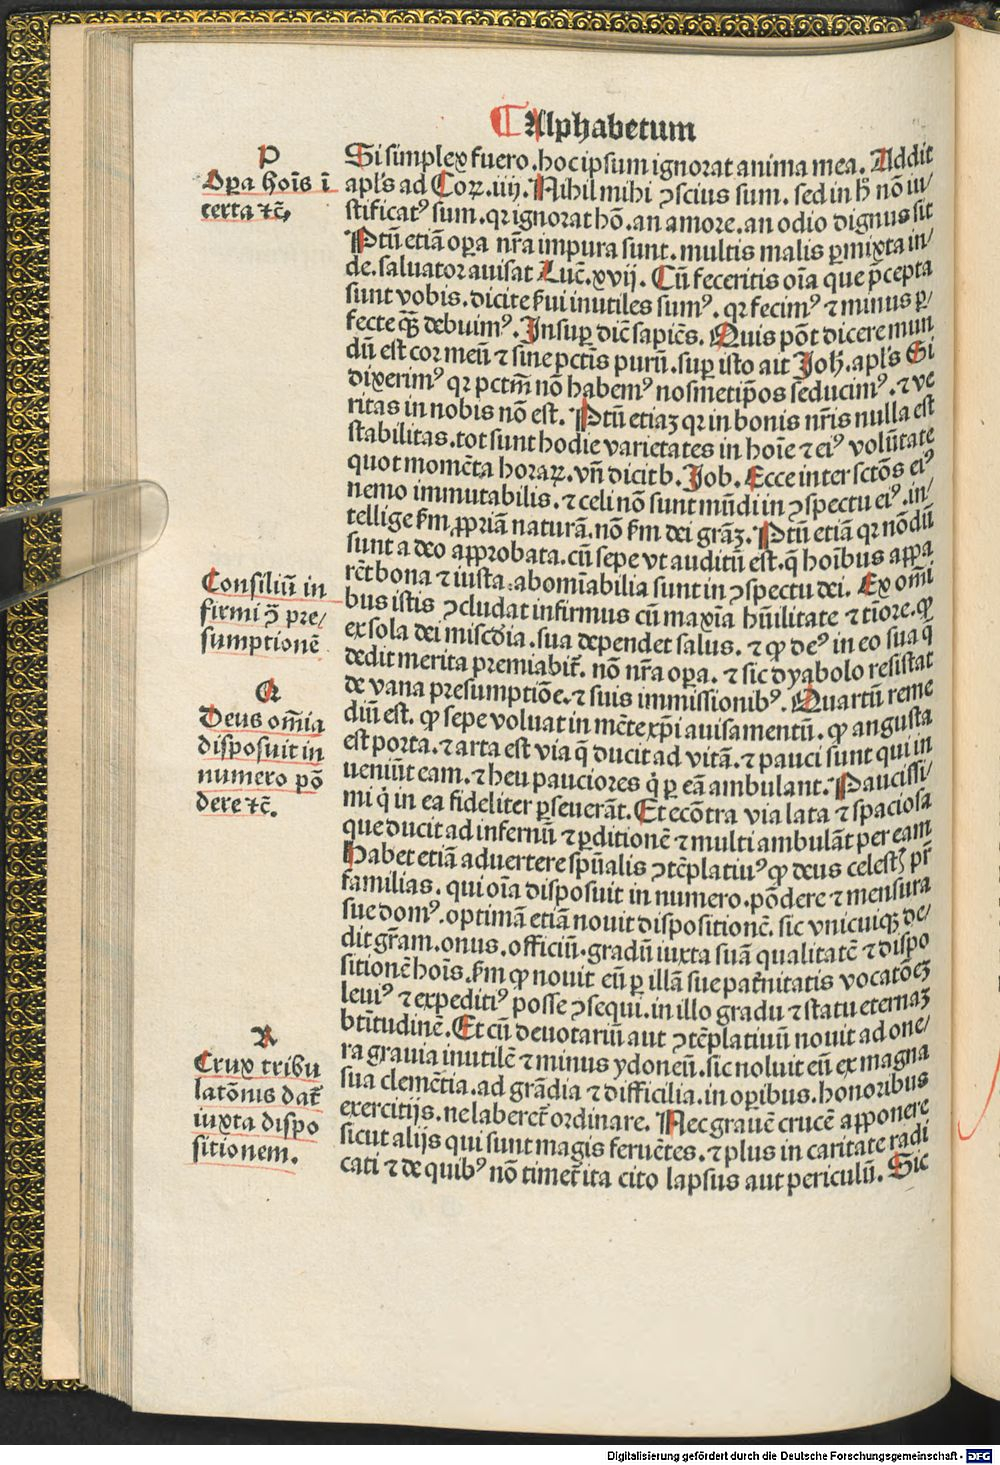 ¶ Alphabetum
P
Op̲a hoīs ī
certa ⁊c̄.
Si simplex fuero. hoc ipsum ignorat anima mea. Addit
apl̄s ad Coꝝ. iiij. Nihil mihi ꝯscius sum. sed in h̊ nō iu/
stificatꝰ sum. qꝛ ignorat hō. an amore. an odio dignus sit
Ptū etiā oꝑa nr̄a impura sunt. multis malis ꝑmixta in/
de. saluator auisat Luc̄. xvij. Cū feceritis oīa que p̄cepta
sunt vobis. dicite ẜui inutiles sumꝰ. qꝛ fecimꝰ ⁊ minus ꝑ/
fecte qȝ̄ debuimꝰ. Insuꝑ dic̄ sapiēs. Quis pōt dicere mun
dū est cor meū ⁊ sine pctīs purū. suꝑ isto ait Joh̄. apl̄s Si
dixerimꝰ qꝛ pctm̄ nō habemꝰ nosmetip̄os seducimꝰ. ⁊ ve
ritas in nobis nō est. Ptū etiaꝫ qꝛ in bonis nr̄is nulla est
stabilitas. tot sunt hodie varietates in hoīe ⁊ eiꝰ volūtate
quot momēta horaꝝ. vn̄ dicit b. Job. Ecce inter sctōs eiꝰ
nemo immutabilis. ⁊ celi nō sunt mūdi in ꝯspectu eiꝰ. in/
tellige ẜm ꝓpriā naturā. nō ẜm dei grāꝫ. Ptū etiā qꝛ nōdū
sunt a deo approbata. cū sepe vt auditū est. q̄ hoībus appa
rēt bona ⁊ iusta. abomīabilia sunt in ꝯspectu dei. Ex om̄i
bus istis ꝯcludat infirmus cū maxīa hūilitate ⁊ tīore. ꝙ
ex sola dei miscd̄ia. sua dependet salus. ⁊ ꝙ deꝰ in eo sua q̄
dedit merita premiabit̄. nō nr̄a oꝑa. ⁊ sic dyabolo resistat
de vana presumptiōe. ⁊ suis immissionibꝰ. Quartū reme
diū est. ꝙ sepe voluat in mēte xp̄i auisamentū. ꝙ angusta
est porta. ⁊ arta est via q̄ ducit ad vitā. ⁊ pauci sunt qui in
ueniūt eam. ⁊ heu pauciores q̇ ꝑ eā ambulant. Paucissi/
mi q̇ in ea fideliter ꝑseuerāt. Et ecōtra via lata ⁊ spaciosa
que ducit ad infernū ⁊ ꝑditionē ⁊ multi ambulāt per eam
Habet etiā aduertere spūalis ꝯtēplatiuꝰ ꝙ deus celestꝭ pr̄
familias. qui oīa disposuit in numero. pōdere ⁊ mensura
sue domꝰ. optimā etiā nouit dispositionē. sic vnicuiqꝫ de/
dit gr̄am. onus. officiū. gradū iuxta suā qualitatē ⁊ dispo
sitionē hoīs. ẜm ꝙ nouit eū ꝑ illā sue pat̄nitatis vocatōeꝫ
leuiꝰ ⁊ expeditiꝰ posse ꝯsequi. in illo gradu ⁊ statu eternaꝫ
btītudinē. Et cū deuotariū aut ꝯtēplatiuū nouit ad one/
ra grauia inutilē ⁊ minus ydoneū. sic noluit eū ex magna
sua clemētia. ad grādia ⁊ difficilia. in oꝑibus. honoribus
exercitijs. ne laberet̄ ordinare. Nec grauē crucē apponere
sicut alijs qui sunt magis feruētes. ⁊ plus in caritate radi
cati ⁊ de quibꝰ nō timet̄ ita cito lapsus aut periculū. Sic
Consiliū in
firmi ꝯ̄ pre/
sumptionē
Q
Deus om̄ia
disposuit in
numero pō
dere ⁊c̄.
R
Crux tribu
latōnis dat̄
iuxta dispo
sitionem.
Digitalisierung gefördert durch die Deutsche Forschungsgemeinschaft - DFG